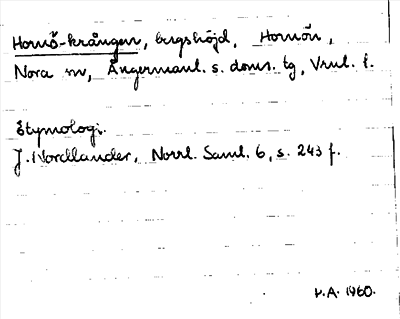 Hornö-krången, bergshöjd, Hornön,
Nora sn, Ångermanl. s. doms. tg, Vnl. l.
Etymologi.
J. Nordlander, Norrl. Saml. 6, s. 243 f.
P.A. 1960.